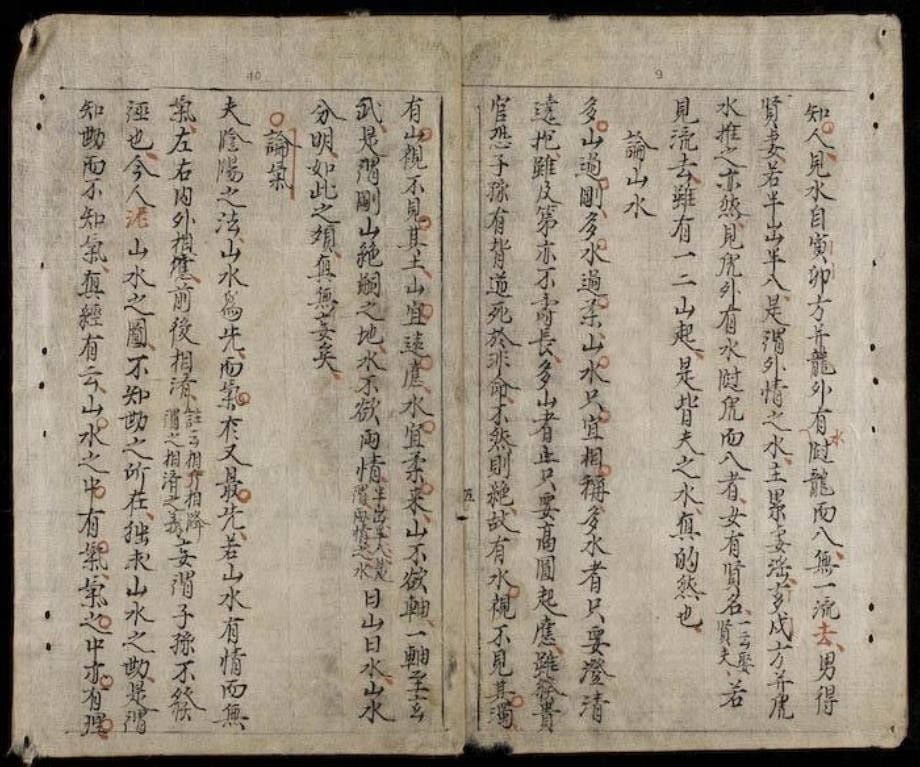 9
知人見水自寅卯方并龍外有水龍而入無一流去男得
賢妻若半山半入是謂外情之水主累妻淫多戌方并虎
水推之亦然見虎外有水虎而入者女有賢名一云娶賢夫若
見流去雖有一二山起是皆夫之水真的然也
論山水
多山過剛多水過柔山水只宜相稱多水者只要澄清
遠抱雖及第亦不壽長多山者只要高圓起應雖發貴
官恐子孫有背道死於非命不然則絶故有水視不見其濁
五
10
有山視不見其土山宜遠應水宜柔來山不欲軸一軸至玄
武是謂剛山絶嗣之地水不欲兩情半出半入是謂兩情之水曰山曰水山水
分明如此之類真無妄矣
論氣
夫陰陽之法山水爲先而氣在又最先若山水有情而無
氣左右内外相應前後相濟註云相介相降謂之相濟之義妄謂子孫不發
誣也今人泥山水之圖不知勘之所在徒求山水之勘是謂
知勘而不知氣真經有云山水之中有氣氣之中亦有理